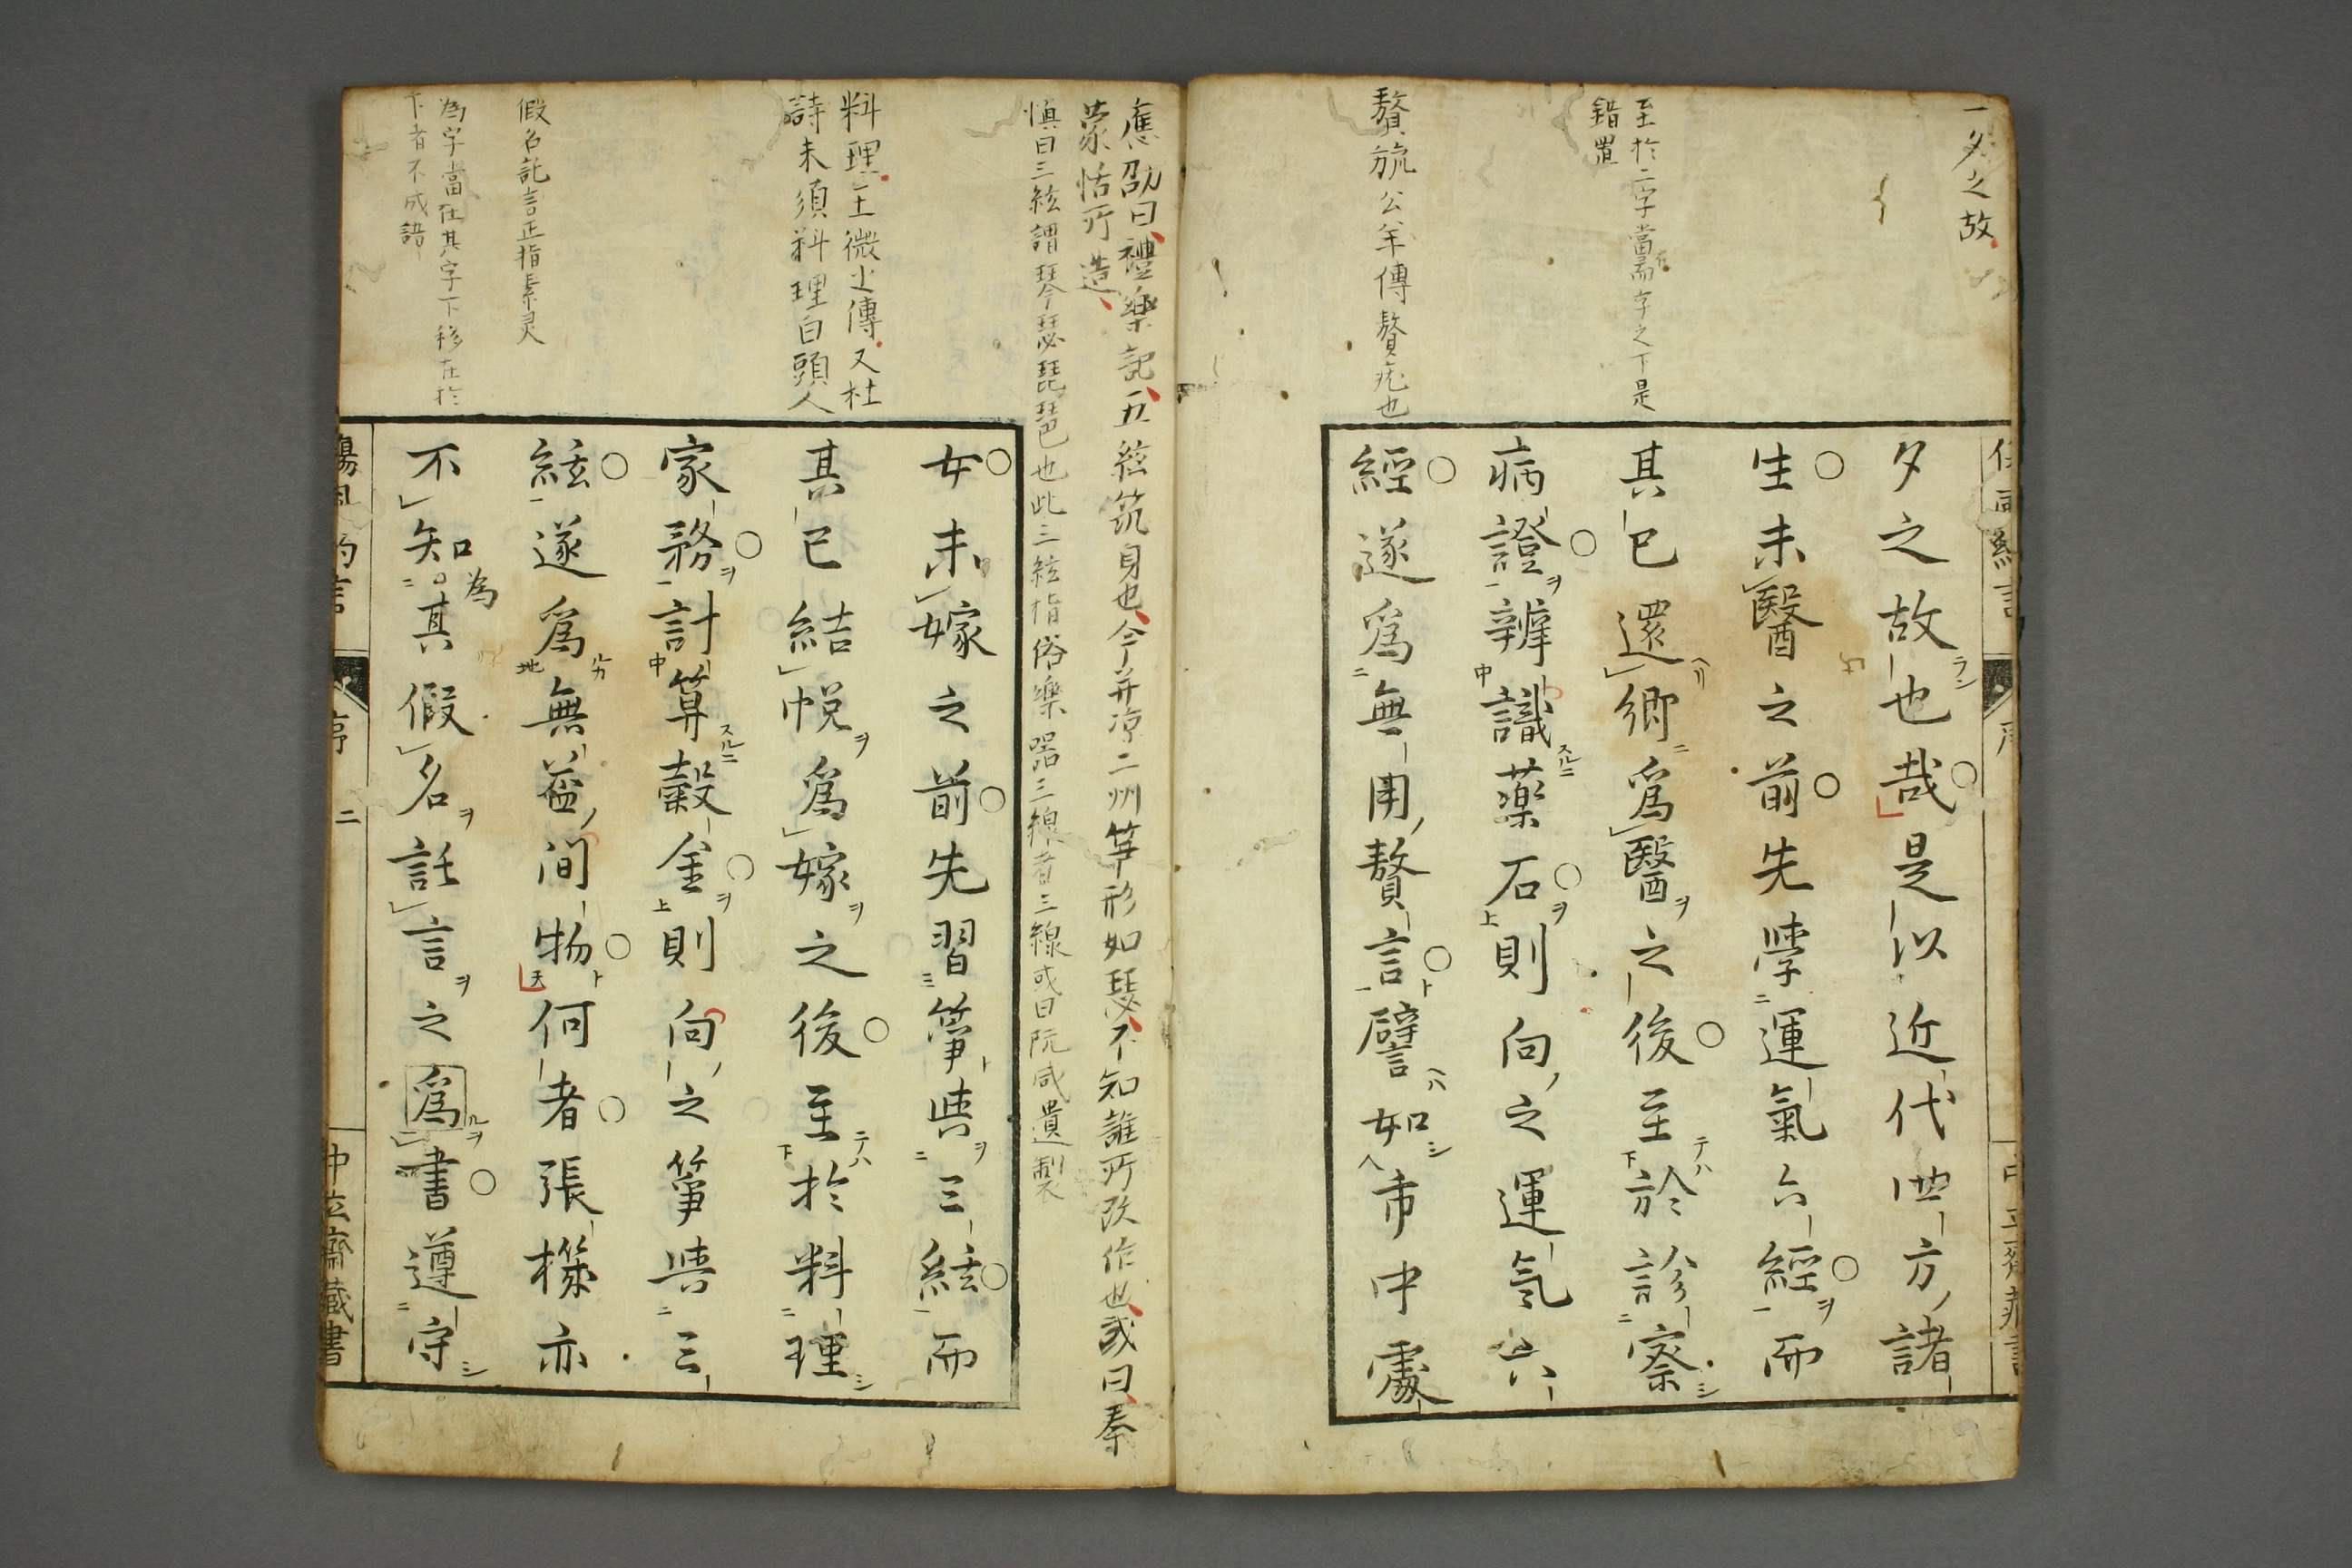 一夕之故
至於二字當在而字之下是
錯置
贅疣公羊傳贅疣也
夕之故也哉是以近代四方諸
生未醫之前先學運氣六經而
其已還鄉爲醫之後至於診察
病證辨識藥石則向之運氣六
經遂爲無用贅言譬如市中處
應劭曰禮樂記五絃筑身也今并凉二州箏形如瑟不知誰所改作也或曰秦
蒙恬所造
慎曰三絃謂琴瑟琵琶也此三絃指俗樂器三線者三線或曰阮咸遺製
料理王微之傳又杜
詩未須料理白頭人
假名託言正指素灵
為字當在其字下移在於
下者不成語
女未嫁之前先習箏與三絃而
其已結帨爲嫁之後至於料理
家務計算穀金則向之箏與三
絃遂爲無益間物何者張機亦
不知其為假名託言之爲書遵守
傷風約言
序 二
中立齋藏書